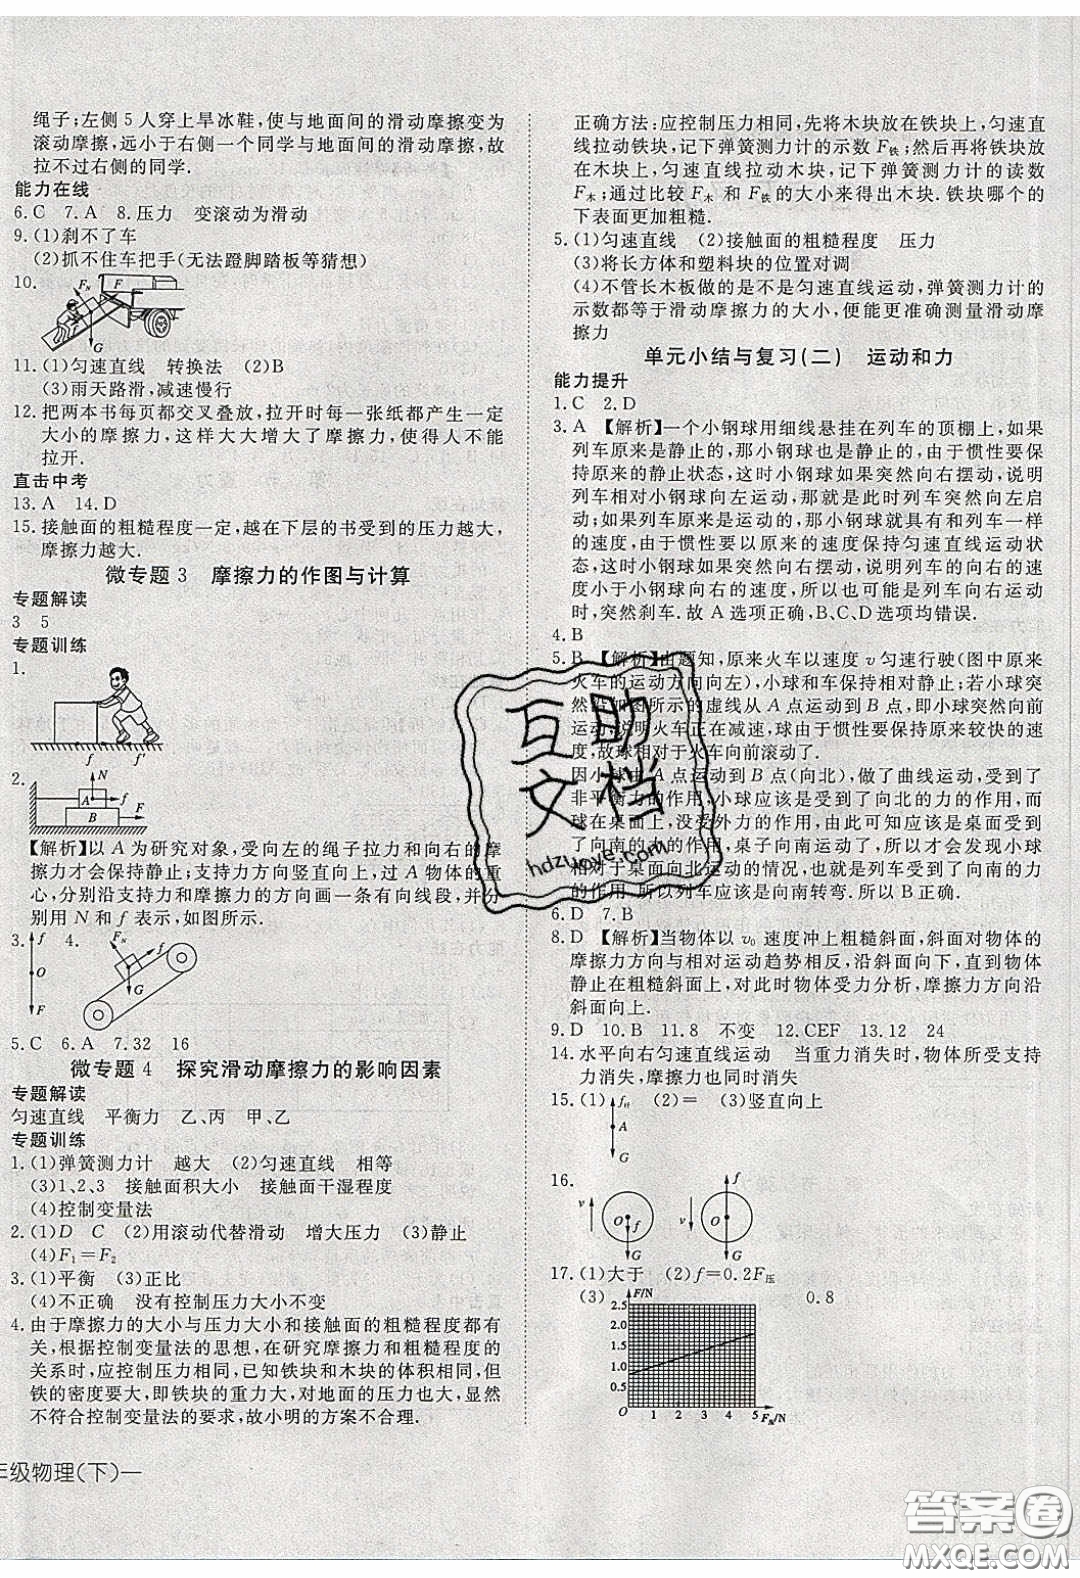 绳子;左侧 5 人穿上旱冰鞋,使与地面间的滑动摩擦变为
滚动摩擦,远小于右侧一个同学与地面间的滑动摩擦,故
拉不过右侧的同学.
能力在线
6.C 7.A 8.压力 变滚动为滑动
9.(1)刹不了车
(2)抓不住车把手(无法蹬脚踏板等猜想)
10.
F_N F
G
11.(1)匀速直线 转换法 (2)B
(3)雨天路滑,减速慢行
12.把两本书每页都交叉叠放,拉开时每一张纸都产生一定
大小的摩擦力,这样大大增大了摩擦力,使得人不能
拉开.
直击中考
13.A 14.D
15.接触面的粗糙程度一定,越在下层的书受到的压力越大,
摩擦力越大.
微专题 3 摩擦力的作图与计算
专题解读
3 5
专题训练
1.
f f′
2.
N
A f
B F
【解析】以 A 为研究对象,受向左的绳子拉力和向右的摩
擦力才会保持静止;支持力方向竖直向上,过 A 物体的重
心,分别沿支持力和摩擦力的方向画一条有向线段,并分
别用 N 和 f 表示,如图所示.
3. f 4. F_N f
O
G
F
5.C 6.A 7.32 16
微专题 4 探究滑动摩擦力的影响因素
专题解读
匀速直线 平衡力 乙、丙 甲、乙
专题训练
1.(1)弹簧测力计 越大 (2)匀速直线 相等
(3)1、2、3 接触面积大小 接触面干湿程度
(4)控制变量法
2.(1)D C (2)用滚动代替滑动 增大压力 (3)静止
(4)F₁=F₂
3.(1)平衡 (3)正比
(4)不正确 没有控制压力大小不变
4.由于摩擦力的大小与压力大小和接触面的粗糙程度都有
关,根据控制变量法的思想,在研究摩擦力与粗糙程度的
关系时,应控制压力相同,已知铁块和木块的体积相同,但
铁的密度要大,即铁块的重力大,对地面的压力也大,显然
不符合控制变量法的要求,故小明的方案不合理.
年级物理(下)—
正确方法:应控制压力相同,先将木块放在铁块上,匀速直
线拉动铁块,记下弹簧测力计的示数 F铁;然后再将铁块
放在木块上,匀速直线拉动木块,记下弹簧测力计的读数
F木;通过比较 F木 和 F铁 的大小来得出木块.铁块哪个的
下表面更加粗糙.
5.(1)匀速直线 (2)接触面的粗糙程度 压力
(3)将长方体和塑料块的位置对调
(4)不管长木板做的是不是匀速直线运动,弹簧测力计的
示数都等于滑动摩擦力的大小,便能更准确测量滑动摩
擦力
单元小结与复习(二) 运动和力
能力提升
1.C 2.D
3.A 【解析】一个小钢球用细线悬挂在列车的顶棚上,如果
列车原来是静止的,那么小钢球也是静止的,由于惯性要保
持原来的静止状态,这时小钢球如果突然向右摆动,说明
列车相对小钢球向左运动,那就是此时列车突然向左启
动;如果列车原来是运动的,小钢球就具有和列车一样
的速度,由于惯性要以原来的速度保持匀速直线运动状
态,这时小钢球如果突然向右摆动,说明列车向右运动的
速度小于小钢球向右的速度,所以只能是列车向右运动
时,突然刹车.故 A 选项正确,B、C、D选项均错误.
4.B
5.B 【解析】由题知,原来火车以速度 v 匀速行驶(图中原来
火车的运动方向向左),小球和车保持相对静止;若小球突
然沿如图所示的虚线从 A 点运动到 B 点,即小球向前
运动,说明火车正在减速,球由于惯性要保持原来较快的速
度,故球相对于火车向前滚动了.
因小球由 A 点运动到 B 点(向北),做了曲线运动,受到了
非平衡力的作用,小球应该是受到了向北的力的作用,而
球在桌面上,没受外力的作用,因此可知应该是桌面受到
了向南的力的作用,桌子向南运动,所以才会发生小球
相对于桌面向北运动的情况,也就是车受到了向南的力
的作用.所以列车应该是向南转弯.所以 B 正确.
6.D 7.B
8.D 【解析】当物体以 v₀ 速度冲上粗糙斜面,斜面对物体的
摩擦力方向与相对运动趋势相反,沿斜面向下,直到物体
静止在粗糙斜面上,对此时物体受力分析,摩擦力方向沿
斜面向上.
9.D 10.B 11.8 不变 12.CEF 13.12 24
14.水平向右匀速直线运动 当重力消失时,物体所受支持
力消失,摩擦力也同时消失
15.(1) (2)= (3)竖直向上
A
G
16.
v O f G
v f O G
17.(1)大于 (2)f=0.2F压
(3) F/N 0.8
2.5
2.0
1.5
1.0
0.5
O 1 2 3 4 5
互助
文档
hdzuoye.com
答案圈
MXQE.COM